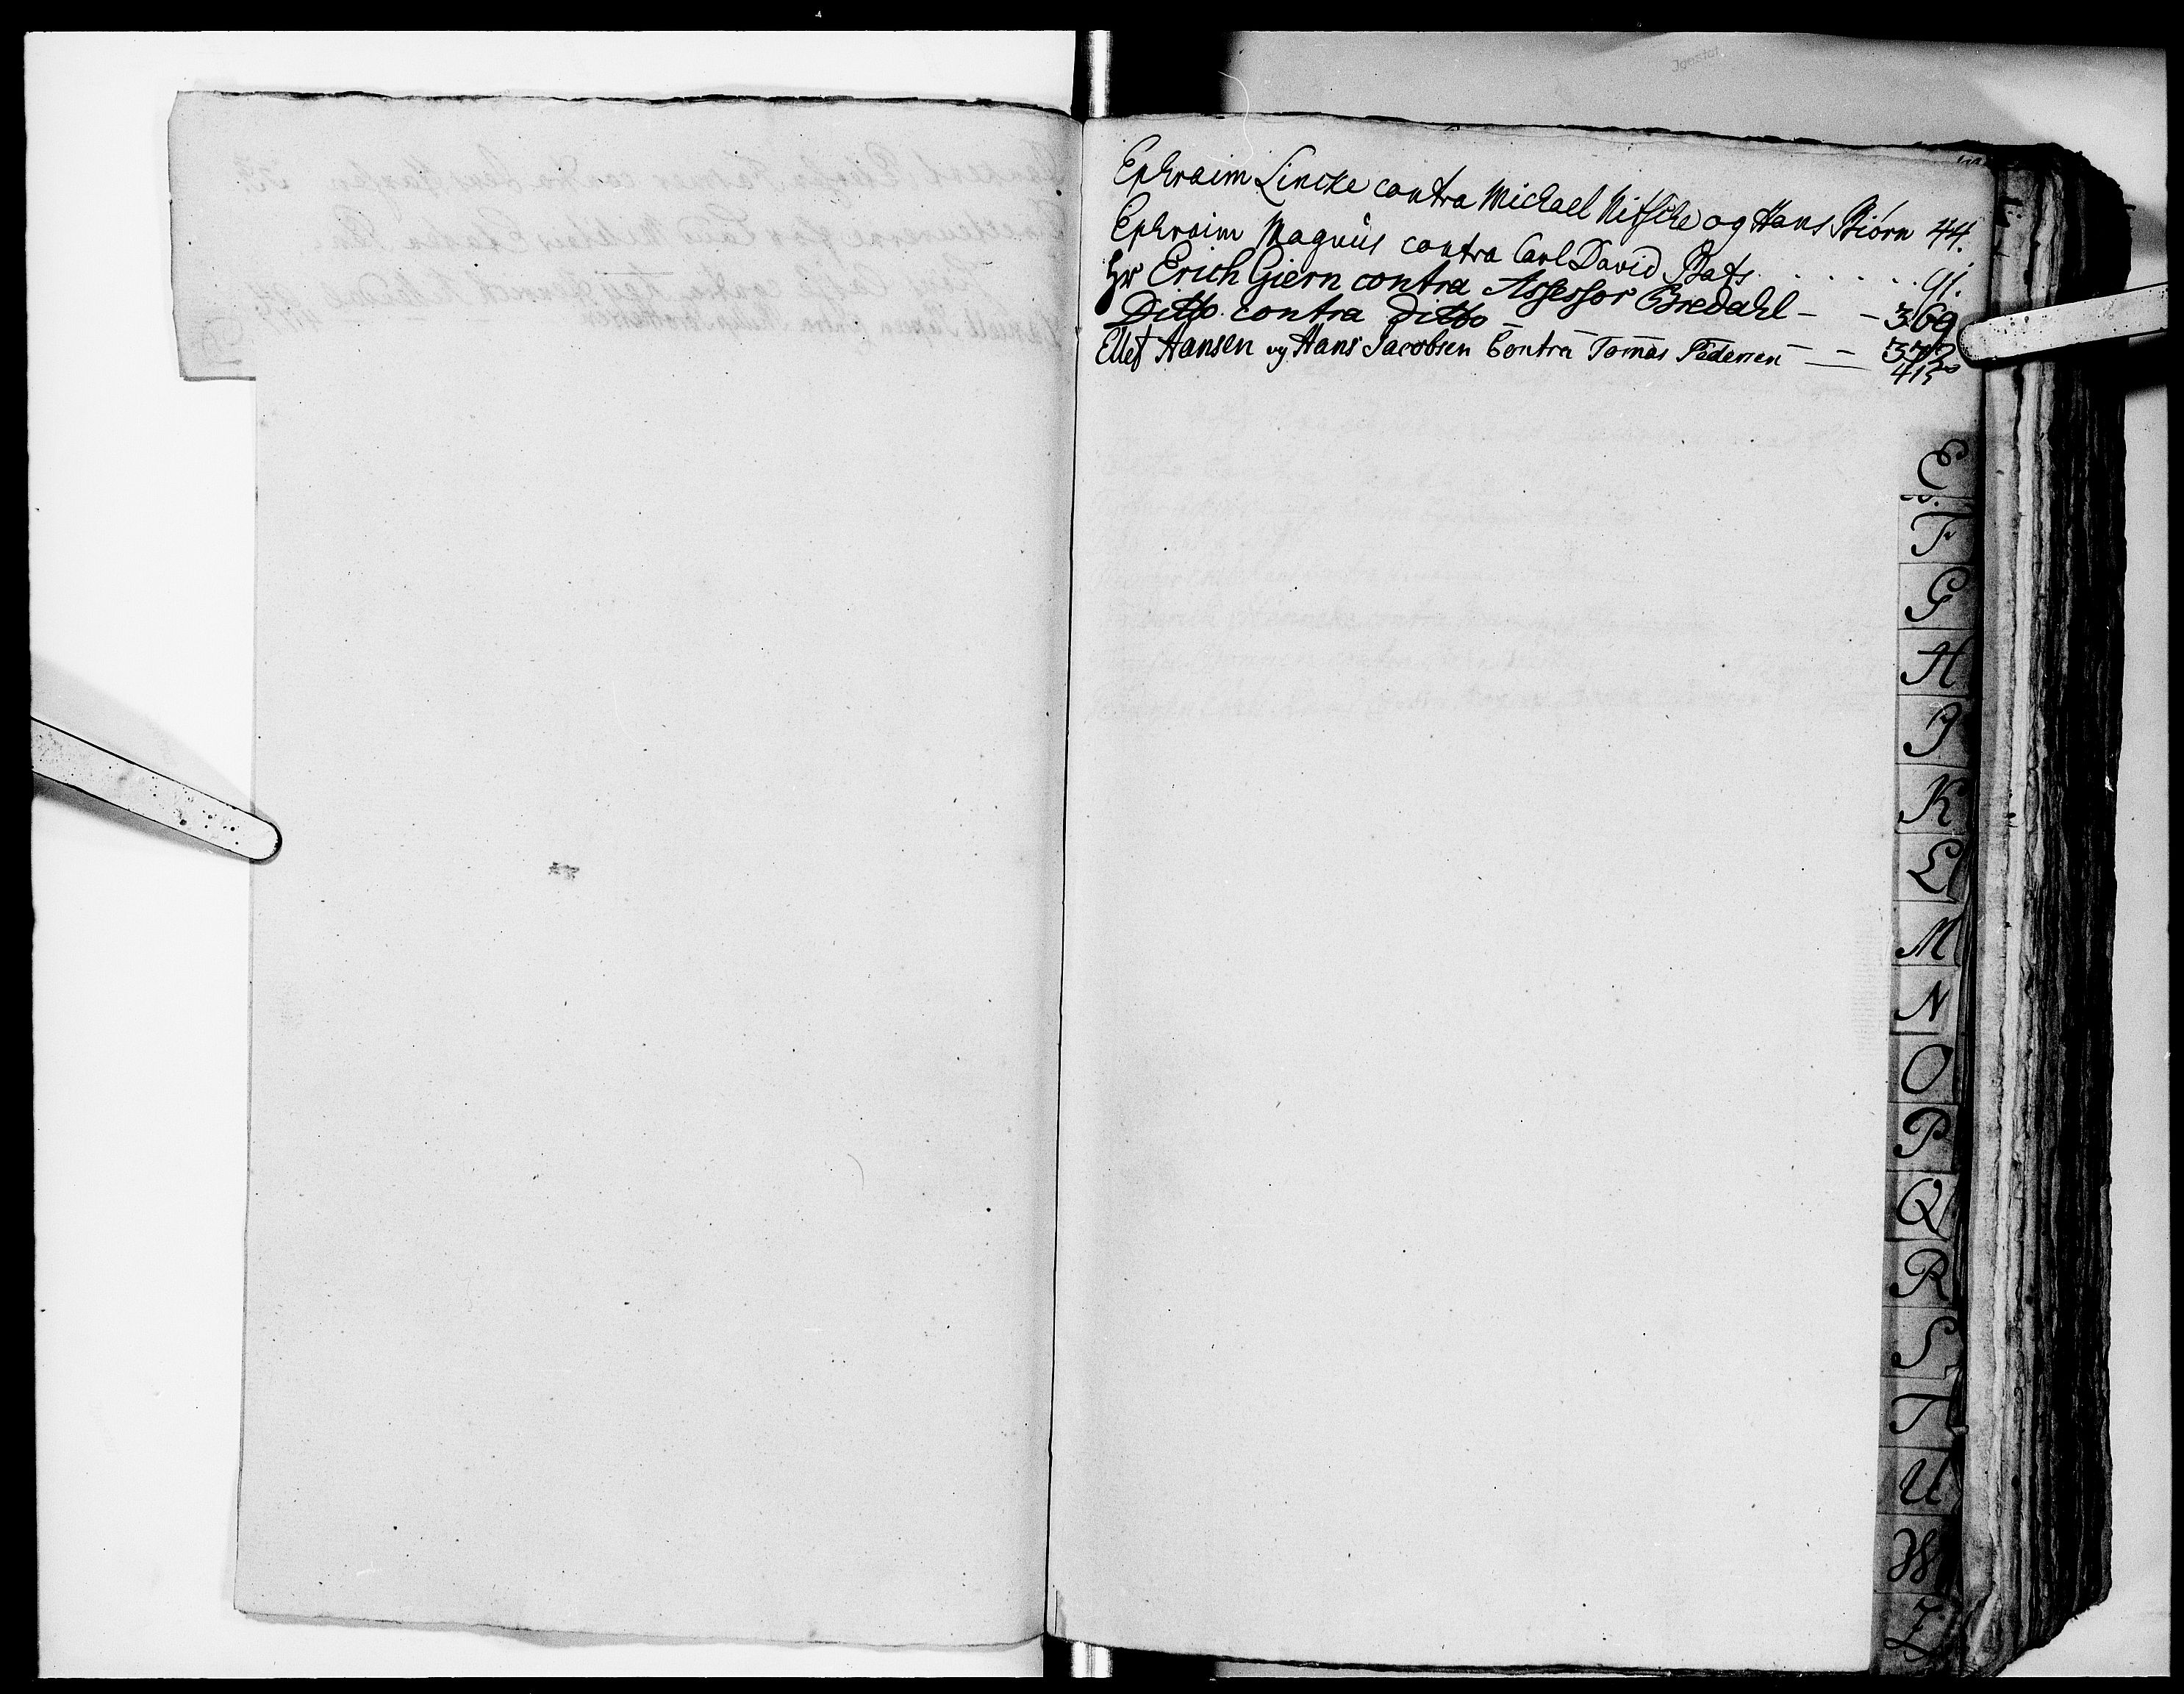 Ephraim Lincke contra Michael Nitsche og Hans Biörn 44.
Ephraim Magnus contra Carl David Bats . . . . . 91.
Hr Erich Giern contra Assessor Bredahl - - 369
Ditto contra ditto -
Ellef Hansen og Hans Jacobsen Contra Tomas Pedersen - - 413
E
F
G
H
I
K
L
M
N
O
P
Q
R
S
T
U
W
Z